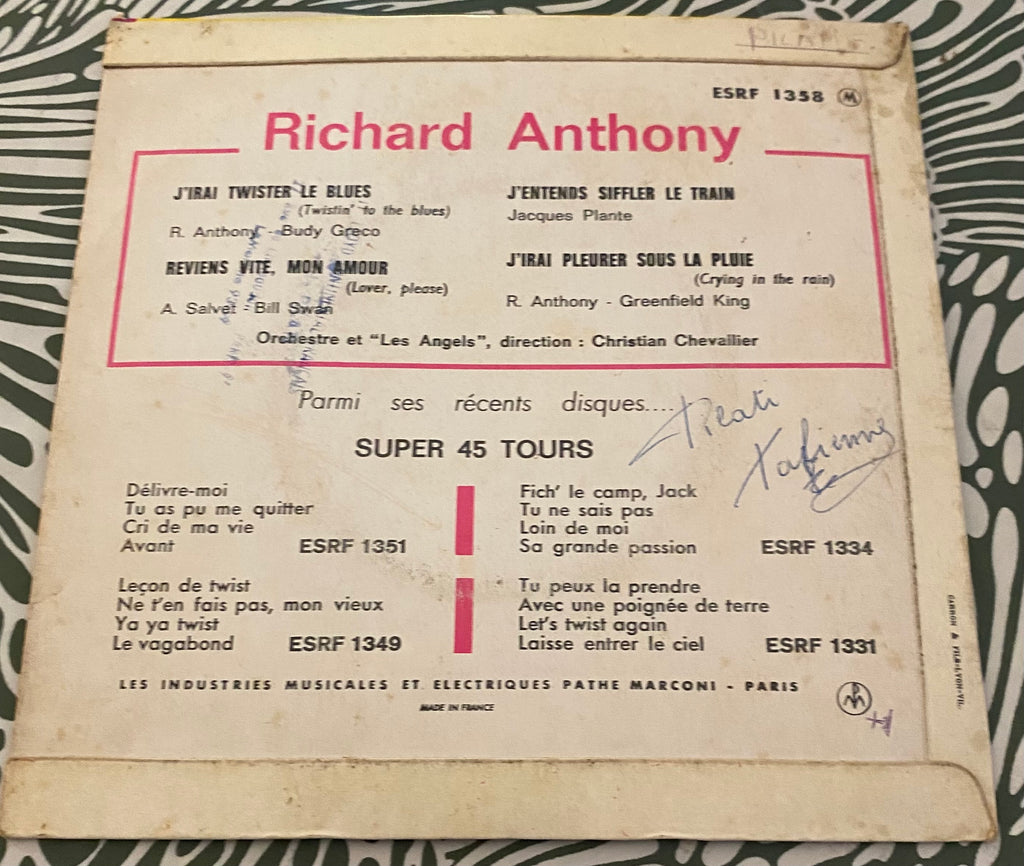 ESRF 1358
Richard Anthony
J'IRAI TWISTER LE BLUES
(Twistin' to the blues)
R. Anthony - Budy Greco
REVIENS VITE, MON AMOUR
(Lover, please)
A. Salvet - Bill Swan
J'ENTENDS SIFFLER LE TRAIN
Jacques Plante
J'IRAI PLEURER SOUS LA PLUIE
(Crying in the rain)
R. Anthony - Greenfield King
Orchestre et "Les Angels", direction : Christian Chevallier
Parmi ses récents disques....
SUPER 45 TOURS
Délivre-moi
Tu as pu me quitter
Cri de ma vie
Avant ESRF 1351
Fich' le camp, Jack
Tu ne sais pas
Loin de moi
Sa grande passion ESRF 1334
Leçon de twist
Ne t'en fais pas, mon vieux
Ya ya twist
Le vagabond ESRF 1349
Tu peux la prendre
Avec une poignée de terre
Let's twist again
Laisse entrer le ciel ESRF 1331
LES INDUSTRIES MUSICALES ET ELECTRIQUES PATHE MARCONI - PARIS
MADE IN FRANCE